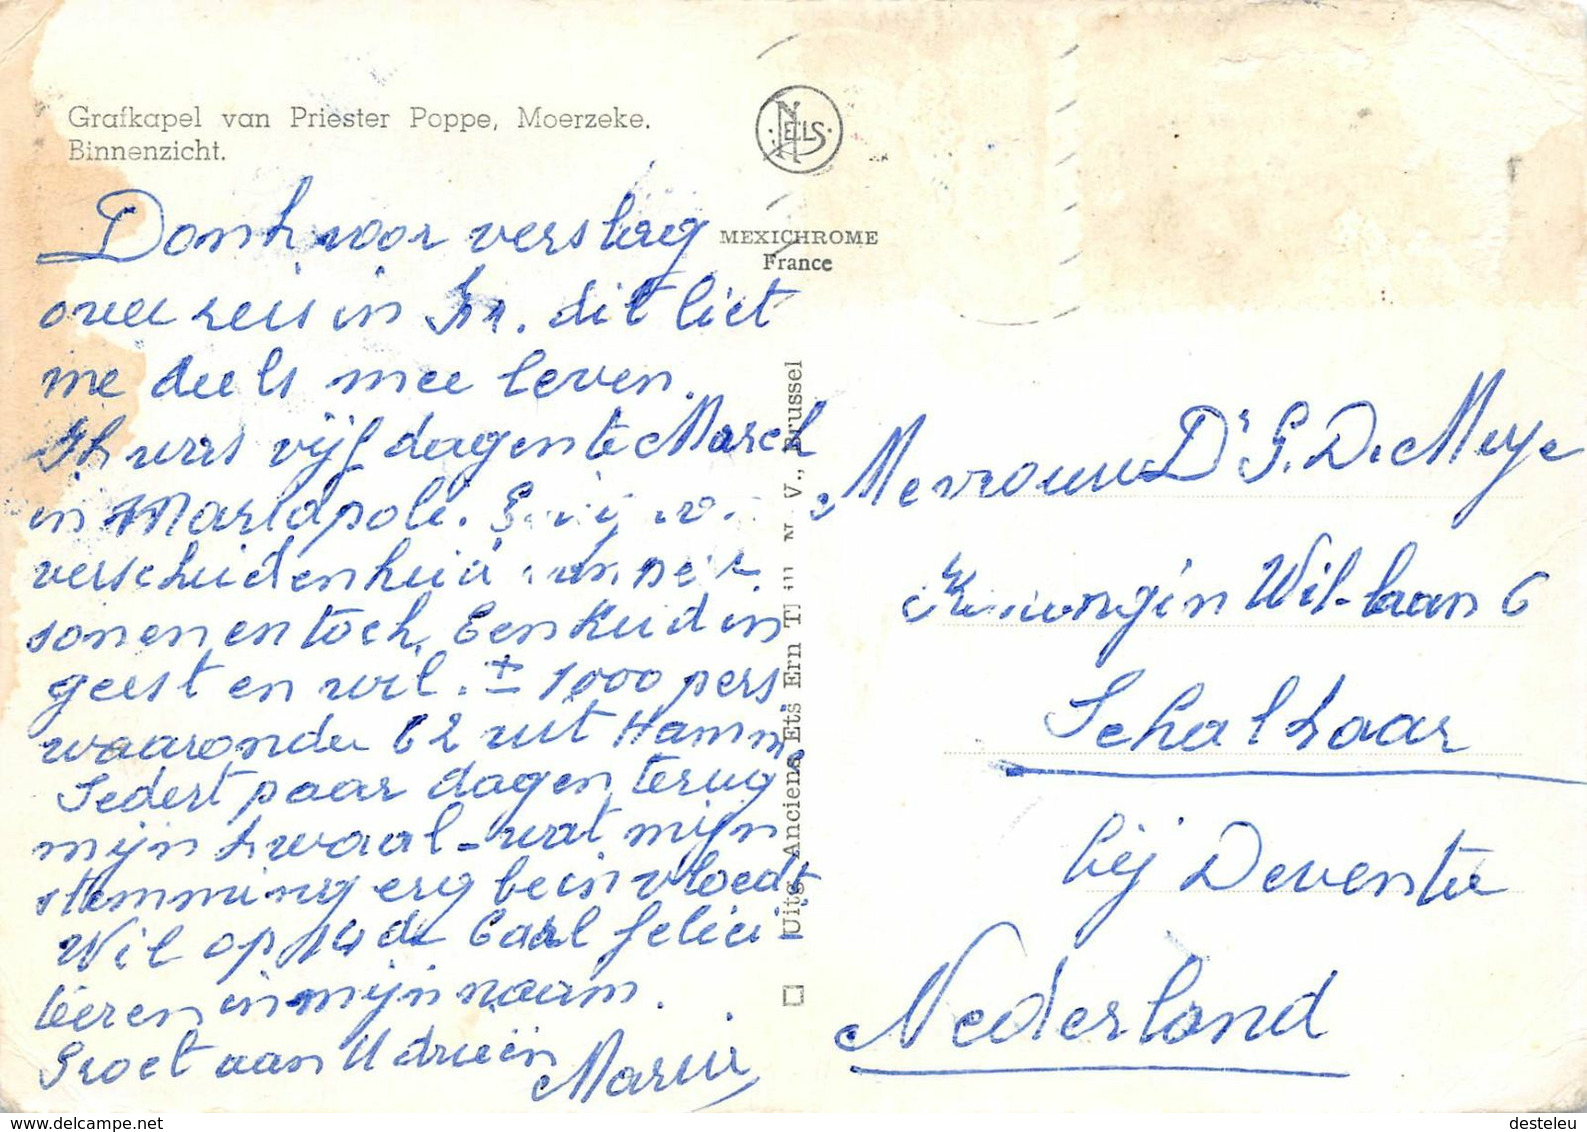 Grafkapel van Priester Poppe, Moerzeke.
Binnenzicht.
NELS
MEXICHROME
France
Uitg. Anciens Ets Ern. V., Brussel
Dank voor verslag
over reis in Fr. dit liet
me deels mee leven.
Ik was vijf dagen te March
in Mariapoli.
verscheidenheid
sonen en toch Eenheid in
geest en wil. ± 1000 pers
waaronder 62 uit Hamme
Sedert paar dagen terug
mijn kwaal - wat mijn
stemming erg beinvloedt
Wil op 14 de Carl felici-
teren in mijn naam.
Groet aan U drieën
Maria
Mevrouw Dr G. De Meye
Koningin Wil-laan 6
Schalkaar
bij Deventer
Nederland
desteleu
www.delcampe.net